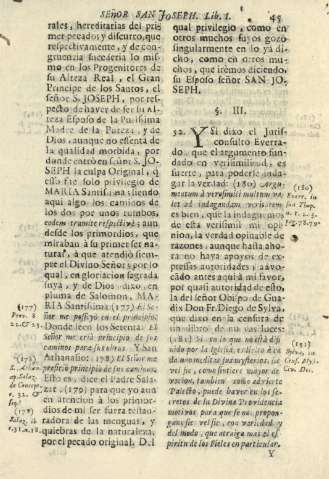 SEÑOR SAN JOSEPH. Lib. I. 45
rales, hereditarias del pri-
mer pecados y discurro, que
respectivamente, y de con-
gruencia sucederia lo mis-
mo en los Progenitores de
su Alteza Real, el Gran
Principe de los Santos, el
señor S. JOSEPH, por res-
pecto de haver de ser su Al-
teza Esposo de la Purissima
Madre de la Pureza, y de
Dios, aunque no essenta de
la qualidad morbida, por
donde entrò en señor S. JO-
SEPH la culpa Original, q̃
esto fue solo privilegio de
MARIA Santissima siendo
aqui algo los caminos de
los dos por unos rumbos,
eodem tramite respectivè; aun
desde los primordios, que
miraban à su primer ser na-
tural, à que atendiò siem-
pre el Divino Señor; por lo
qual, en glorificacion sagrada
suya, y de Dios dixo, en
pluma de Salomon, MA-
RIA Santissima (177) El Se-
ñor me posseyò en el principio
Donde leen los Setenta: El
Señor me criò principio de sus
caminos para sus obras. Y San
Athanasio: (178) El Señor me
prefiriò principio de sus caminos.
Esto es, dice el Padre Sala-
zar (179) para que yo aun
en atencion à los primor-
dios de mi ser fuera restau-
radora de las menguas, y
quiebras de la naturaleza,
por el pecado original. D.I
(177)
Prov. 8
22. & 23.
(178)
(179)
Salaz. ib
qual privilegio, como en
otros muchos suyos gozò
singularmente en lo ya di-
cho, como en otros mu-
chos, que irèmos diciendo,
su Esposo señor SAN JO-
SEPH.
§. III.
52. Y Si dixo el Juris-
consulto Everra-
do, que el argumento fun-
dado en verisimilitud, es
fuerte, para poderse inda-
gar la verdad: (180) Argu-
mentum à verisimili multùm va-
let ad indagandam veritatem
es bien, que la indaguemos
de esta verisimil mi opi-
nion, la verdad opinable de
razones; aunque hasta aho-
ra no haya apoyos de ex-
pressas autoridades; avo-
cado antes aqui à mi favor,
por quasi autoridad de esto,
la del señor Obispo de Gua-
dix Don Fr. Diego de Sylva,
que dixo en la censura de
un libro de nuevas luces:
(181) Si en lo que no està difi-
nido por la Iglesia,
vel sic, como sintiere mayor de-
vocion, tambien como advierte
Palestro, puede haver en los se-
cretos de la Divina Providencia
motivos, para que se nos propon-
gan sic, vel sic, con variedad, y
del modo, que atraiga mas el es-
piritu de los Fieles en particular.
(180)
(181)
Sylva, in
Y